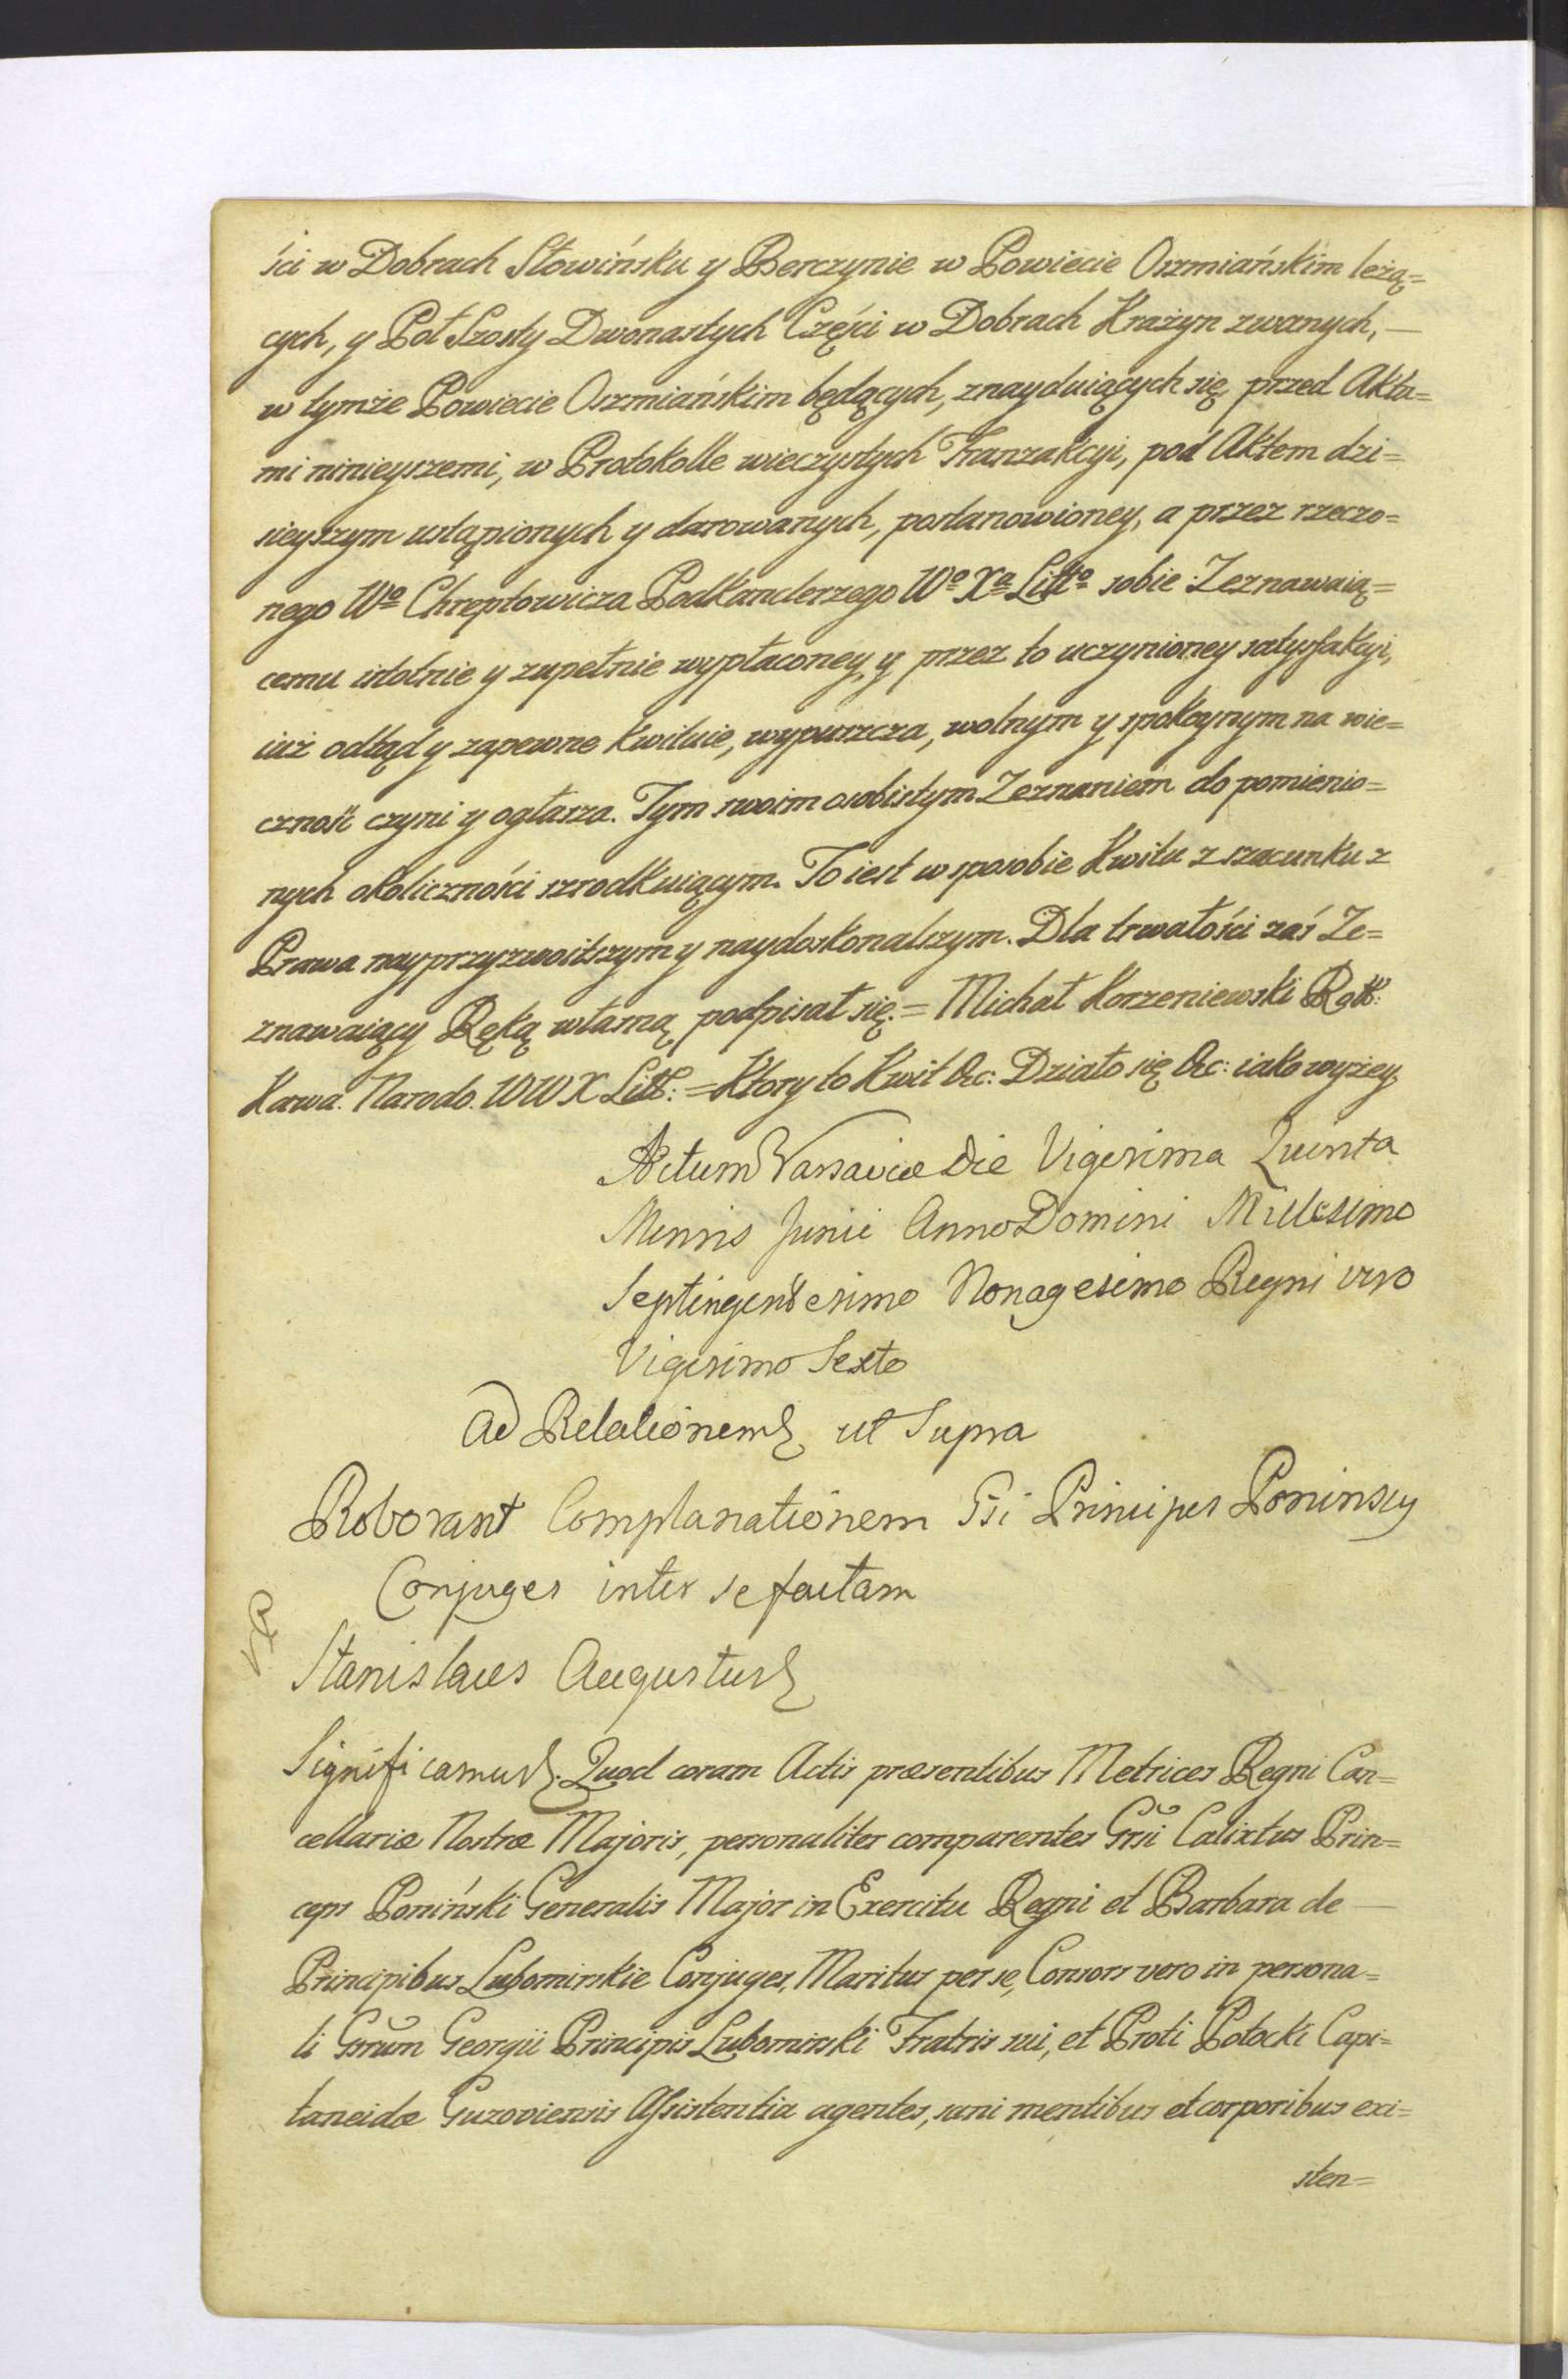 ści w Dobrach Słowińsku y Berczynie w Powiecie Oszmiańskim leżą=
cych, y Poł Szosty Dwonastych Części w Dobrach Krażyn zwanych, —
w tymże Powiecie Oszmiańskim będących, znayduiących się, przed Akta=
mi ninieyszemi, w Protokolle wieczystych Tranzakcyi, pod Aktem dzi=
sieyszym ustąpionych y darowanych, postanowioney, a przez rzeczo=
nego Wo Chreptowicza Podkanclerzego Wo Xa Litto sobie Zeznawaią=
cemu istotnie y zupełnie wypłaconey, y przez to uczynioney satysfakcyi,
iuż odtąd y zapewne kwituie, wypuszcza, wolnym y spokoynym na wie=
czność czyni y ogłasza. Tym swoim osobistym Zeznaniem do pomienio=
nych okoliczności szrodkuiącym. To iest w sposobie Kwitu z szacunku z
Prawa nayprzyzwoitszym y naydoskonalszym. Dla trwałości zaś Ze=
znawaiący Ręką własną podpisał się. = Michał Korzeniewski Rott:
Kawa. Narodo. WWX Litt: = Ktory to Kwit &c: Działo się &c: iako wyżey
Actum Varsaviæ Die Vigesima Quinta
Mensis Junii Anno Domini Millesimo
Septingentesimo Nonagesimo Regni vero
Vigesimo Sexto
Ad Relationem ut Supra
Roborant Complanationem Gsi Principes Poninscy
Conjuges inter se factam
Stanislaus Augustus
Significamus. Quod coram Actis præsentibus Metrices Regni Can=
cellariæ Nostræ Majoris, personaliter comparentes Grsi Calixtus Prin=
ceps Poniński Generalis Major in Exercitu Regni et Barbara de —
Principibus Lubomirskie Conjuges, Maritus per se, Consors vero in persona=
li Grsum Georgii Principis Lubomirski Fratris sui, et Proti Potocki Capi=
taneidæ Guzoviensis Assistentia agentes, sani mentibus et corporibus exi=
sten=